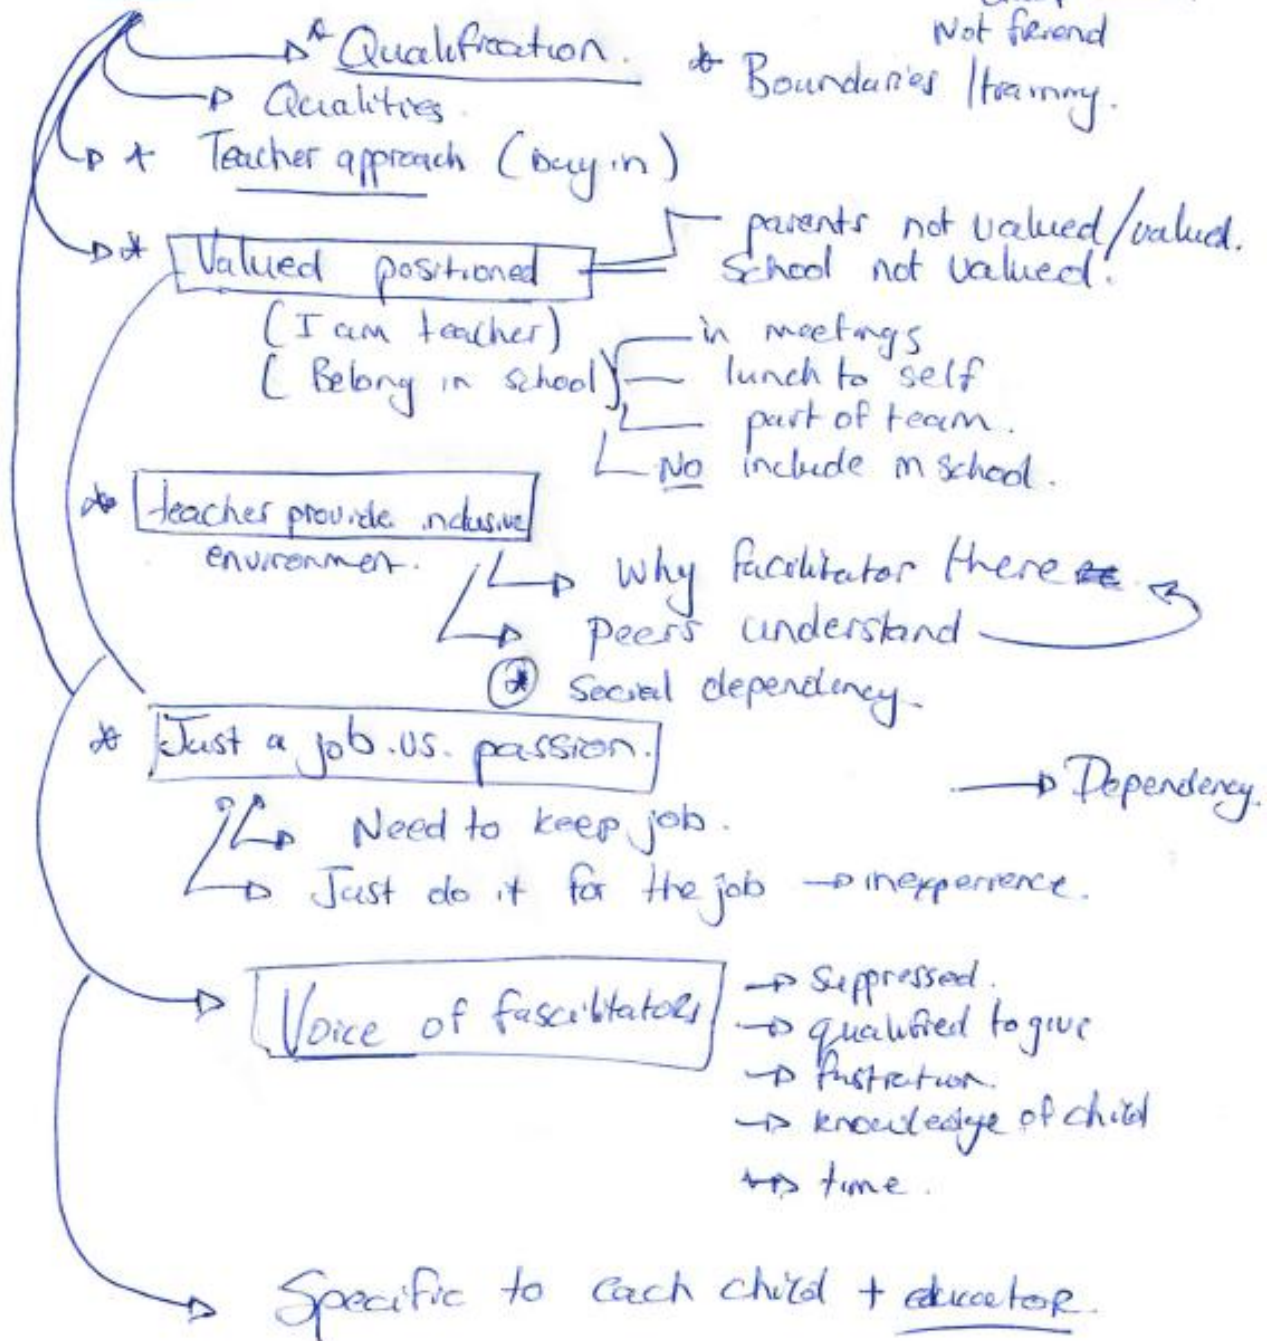 Not friend
* Qualification.
* Boundaries / training.
Qualities.
* Teacher approach (buy in)
parents not valued/valued.
* Valued positioned
School not valued.
(I am teacher)
in meetings
(Belong in school)
lunch to self
part of team.
No include in school.
* teacher provide inclusive
environment.
Why facilitator there
Peers understand
* Social dependency.
* Just a job .vs. passion.
Dependency.
Need to keep job.
Just do it for the job → inexperience.
Voice of fascilitators
→ Suppressed.
→ qualified to give
→ frustration.
→ knowledge of child
→ time.
Specific to each child + educator.